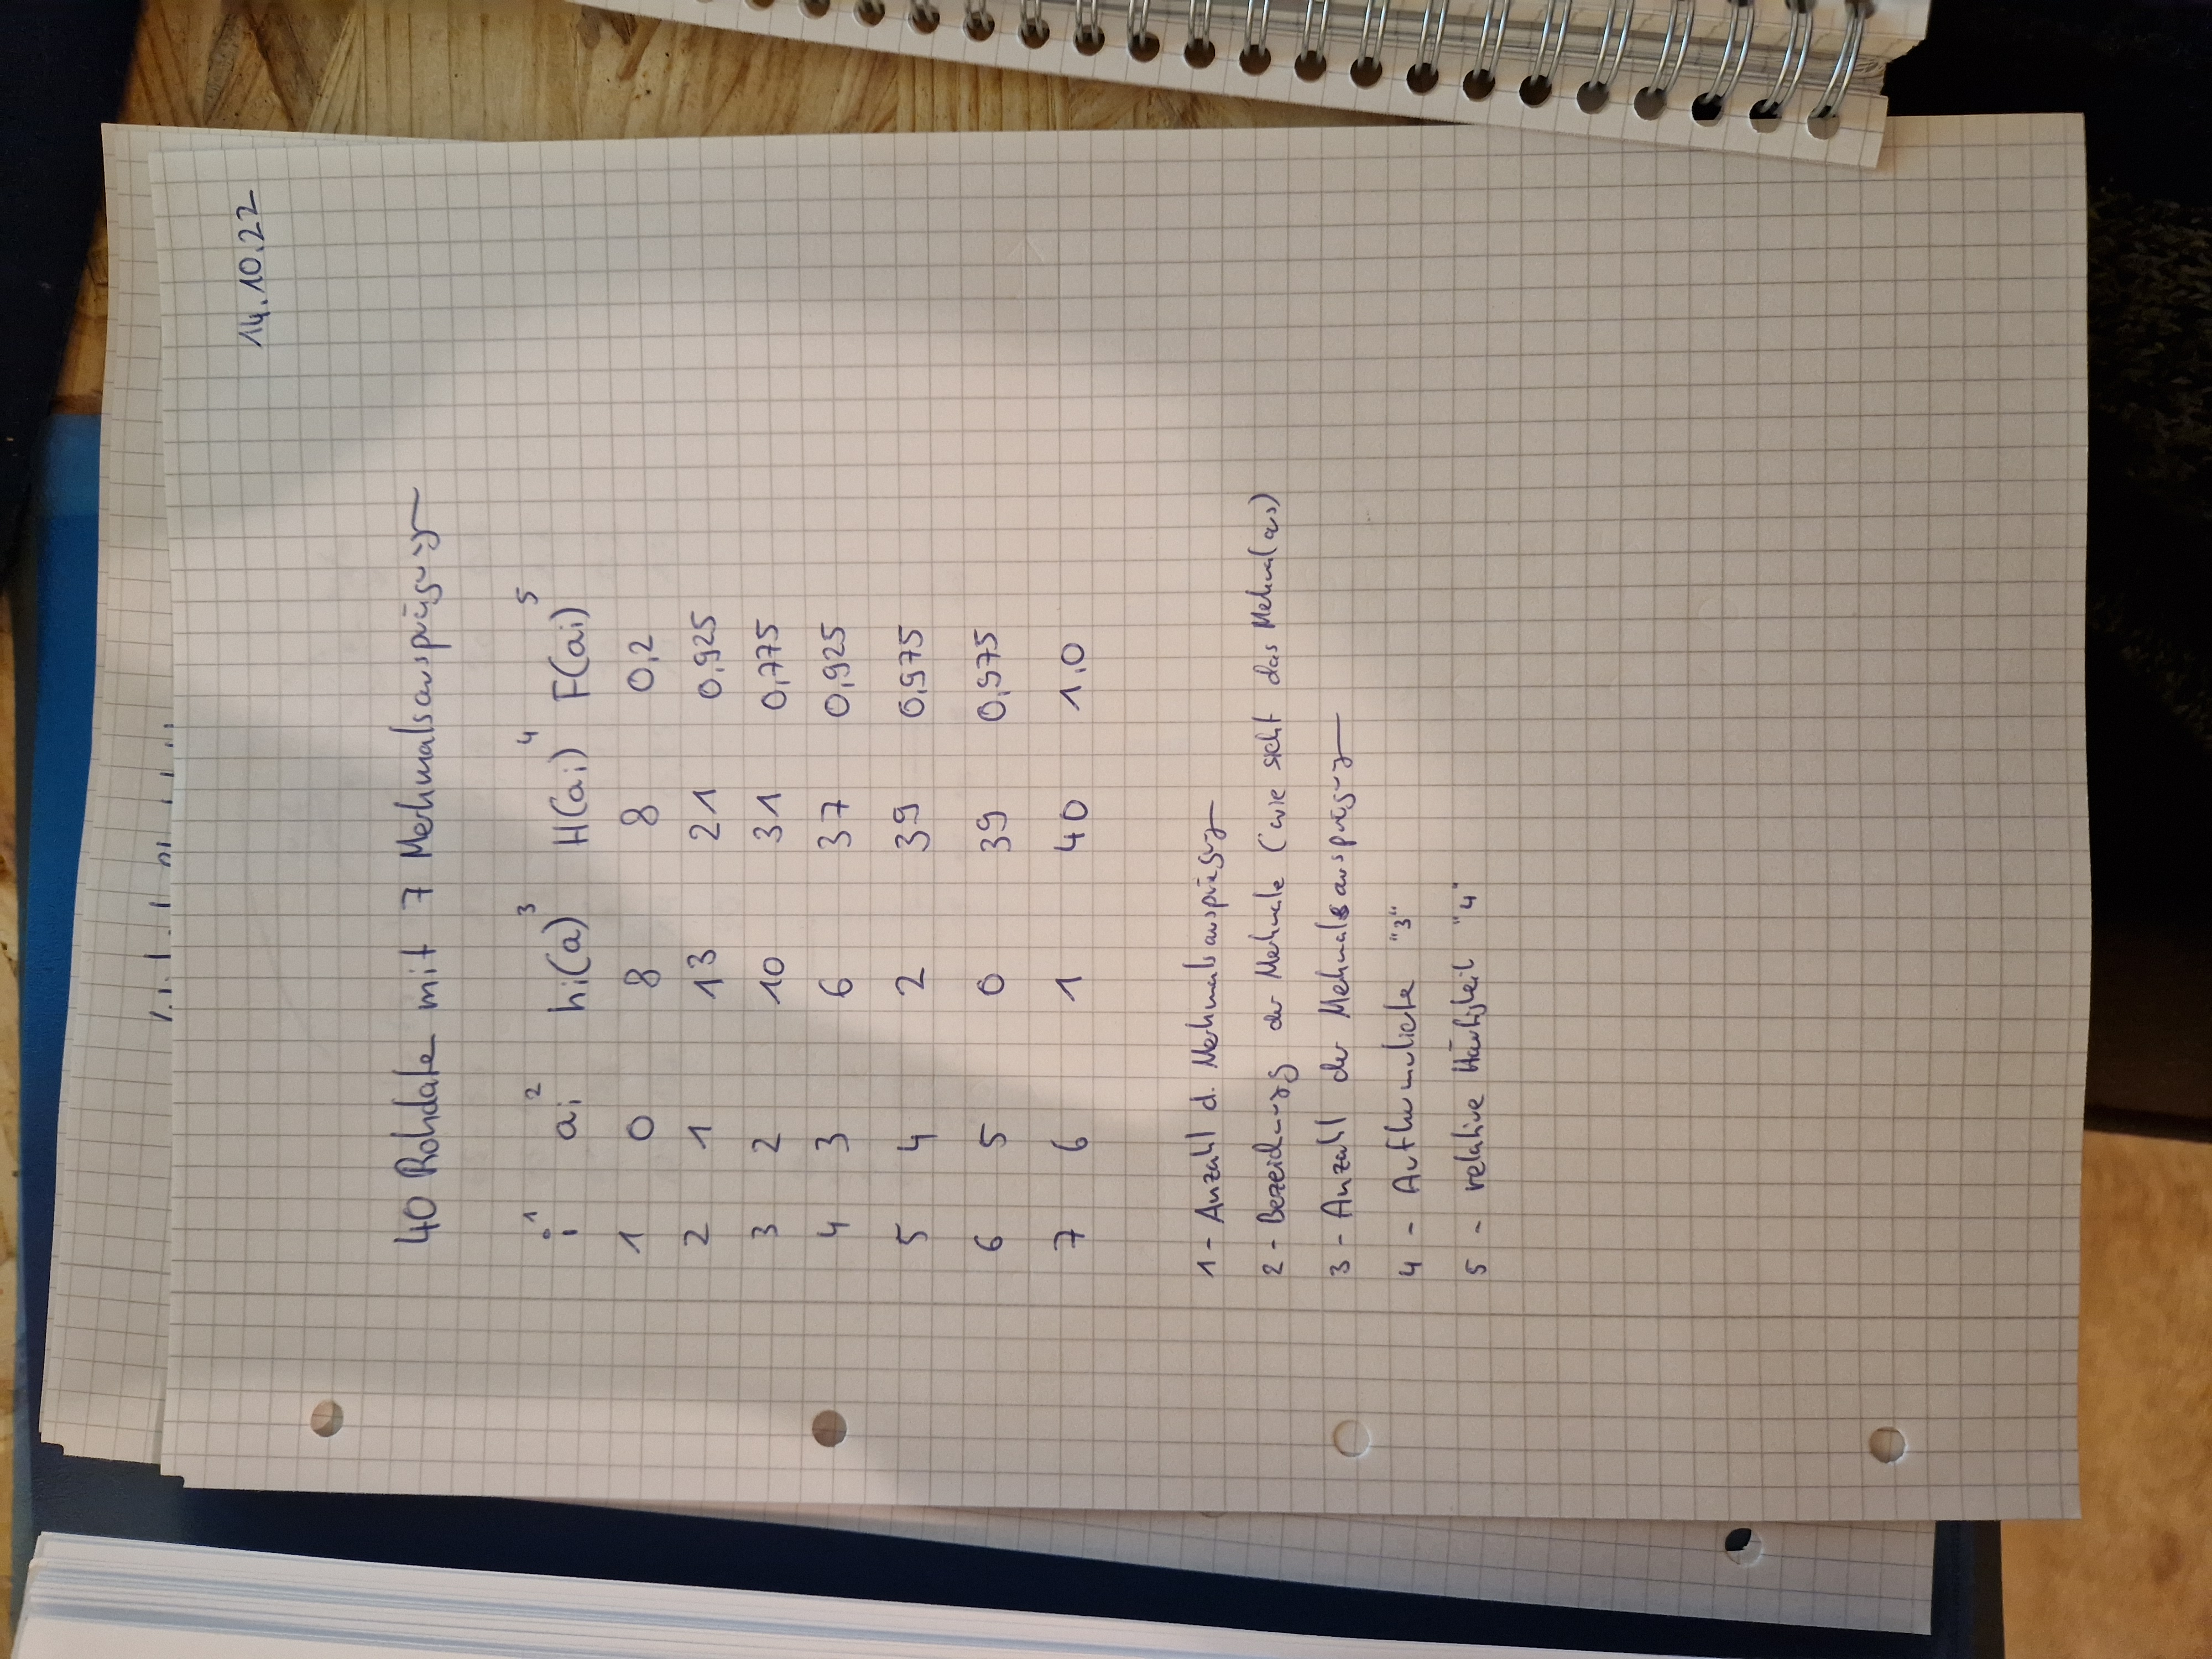 14.10.22
40 Rohdaten mit 7 Merkmalsausprägungen
i¹ ai² hi(a)³ H(ai)⁴ F(ai)⁵
1 0 8 8 0,2
2 1 13 21 0,925
3 2 10 31 0,775
4 3 6 37 0,925
5 4 2 39 0,975
6 5 0 39 0,975
7 6 1 40 1,0
1 - Anzahl d. Merkmalsausprägungen
2 - Bezeichnung der Merkmale (wie sieht das Merkmal aus)
3 - Anzahl der Merkmalsausprägungen
4 - Aufkumulierte "3"
5 - relative Häufigkeit "4"